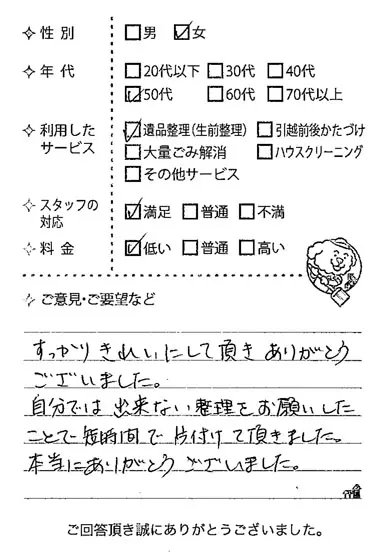 ✧ 性別 □男 ☑女
✧ 年代 □20代以下 □30代 □40代
☑50代 □60代 □70代以上
✧ 利用したサービス ☑遺品整理(生前整理) □引越前後かたづけ
□大量ごみ解消 □ハウスクリーニング
□その他サービス
✧ スタッフの対応 ☑満足 □普通 □不満
✧ 料金 ☑低い □普通 □高い
✧ ご意見・ご要望など
すっかりきれいにして頂きありがとう
ございました。
自分では出来ない整理をお願いした
ことで短時間で片付けて頂きました。
本当にありがとうございました。
ご回答頂き誠にありがとうございました。